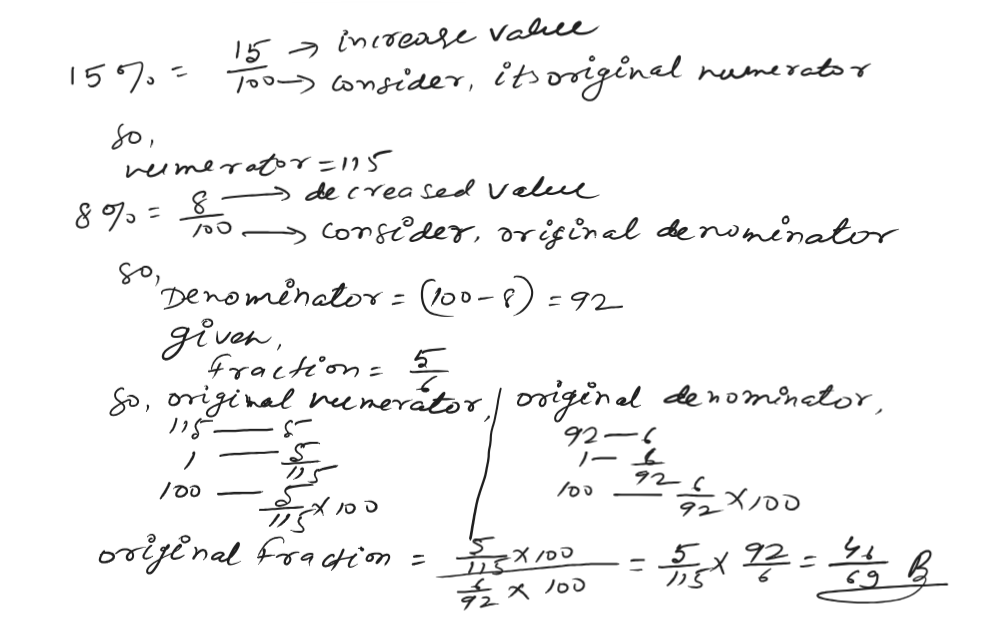 15% = 15/100 → increase value
→ consider, its original numerator
so,
numerator = 115
8% = 8/100 → decreased value
→ consider, original denominator
so,
Denominator = (100-8) = 92
given,
fraction = 5/6
so, original numerator, / original denominator,
115 — 5
92 — 6
1 — 5/115
1 — 6/92
100 — 5/115 × 100
100 — 6/92 × 100
original fraction = (5/115 × 100)/(6/92 × 100) = 5/115 × 92/6 = 46/69 B